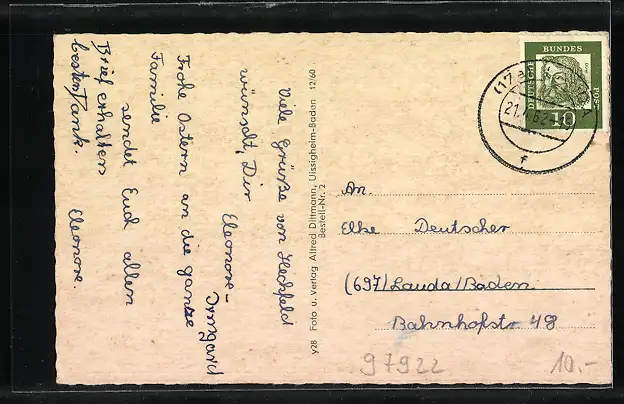 Viele Grüße von Heckfeld
wünscht Dir
Eleonore-
Irmgard
Frohe Ostern an die ganze
Familie
sendet Euch allen
Brief erhalten
besten Dank. Eleonore.
y28 Foto u. Verlag Alfred Dittmann, Uissigheim-Baden 12/60
Bestell-Nr. 2
DEUTSCHE
BUNDES
POST
10
An.
Elke Deutscher
(697) Lauda/Baden
Bahnhofstr 48
97922
10.-